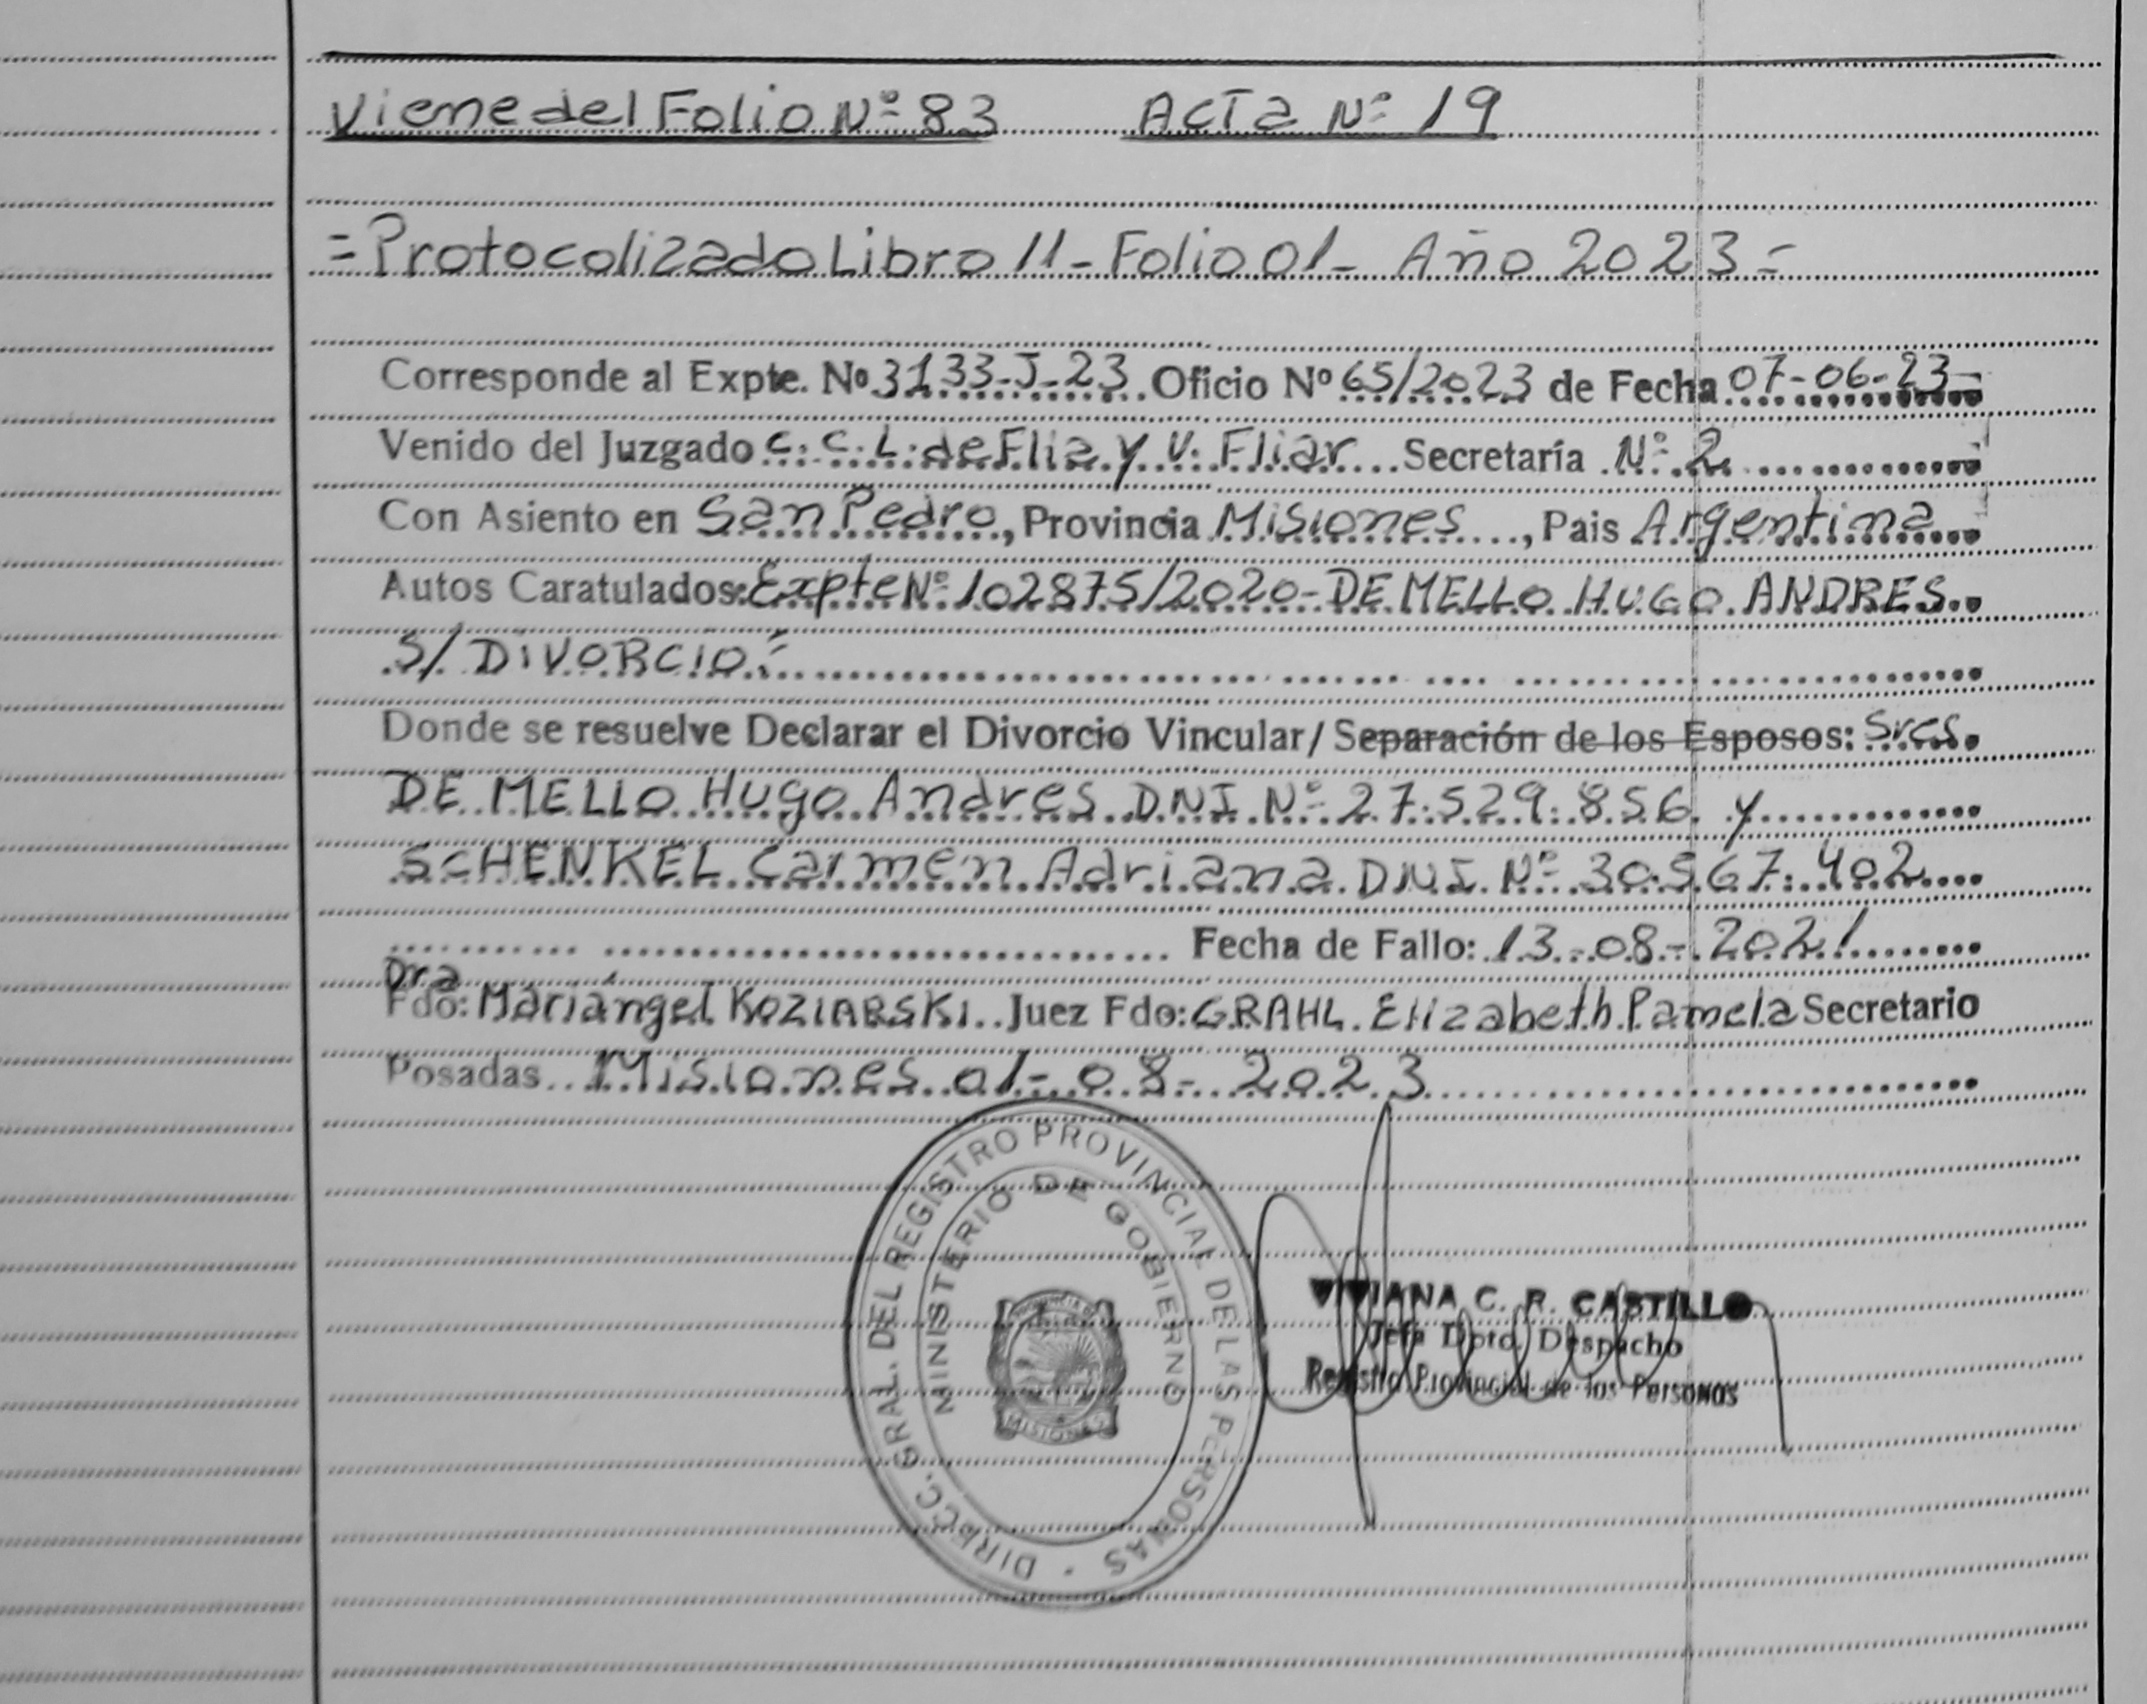 Viene del Folio Nº 83 Acta Nº 19
= Protocolizado Libro 11 - Folio 01 - Año 2023 =
Corresponde al Expte. Nº 3133-J-23 Oficio Nº 65/2023 de Fecha 07-06-23-
Venido del Juzgado C. C. L. de Flia y V. Fliar Secretaría Nº 2
Con Asiento en San Pedro, Provincia Misiones, Pais Argentina
Autos Caratulados: Expte Nº 102875/2020 - DE MELLO HUGO ANDRES
S/ DIVORCIO.-
Donde se resuelve Declarar el Divorcio Vincular/ Separación de los Esposos: Sres.
DE MELLO Hugo Andres DNI Nº 27.529.856 y
SCHENKEL Carmen Adriana DNI Nº 30.567.402
Fecha de Fallo: 13-08-2021
Dra
Fdo: Mariángel KOZIARSKI Juez Fdo: GRAHL Elizabeth Pamela Secretario
Posadas Misiones 01-08-2023
DIRECC. GRAL. DEL REGISTRO PROVINCIAL DE LAS PERSONAS
MINISTERIO DE GOBIERNO
PROVINCIA DE
MISIONES
VIVIANA C. R. CASTILLO
Jefa Dpto. Despacho
Registro Provincial de las Personas